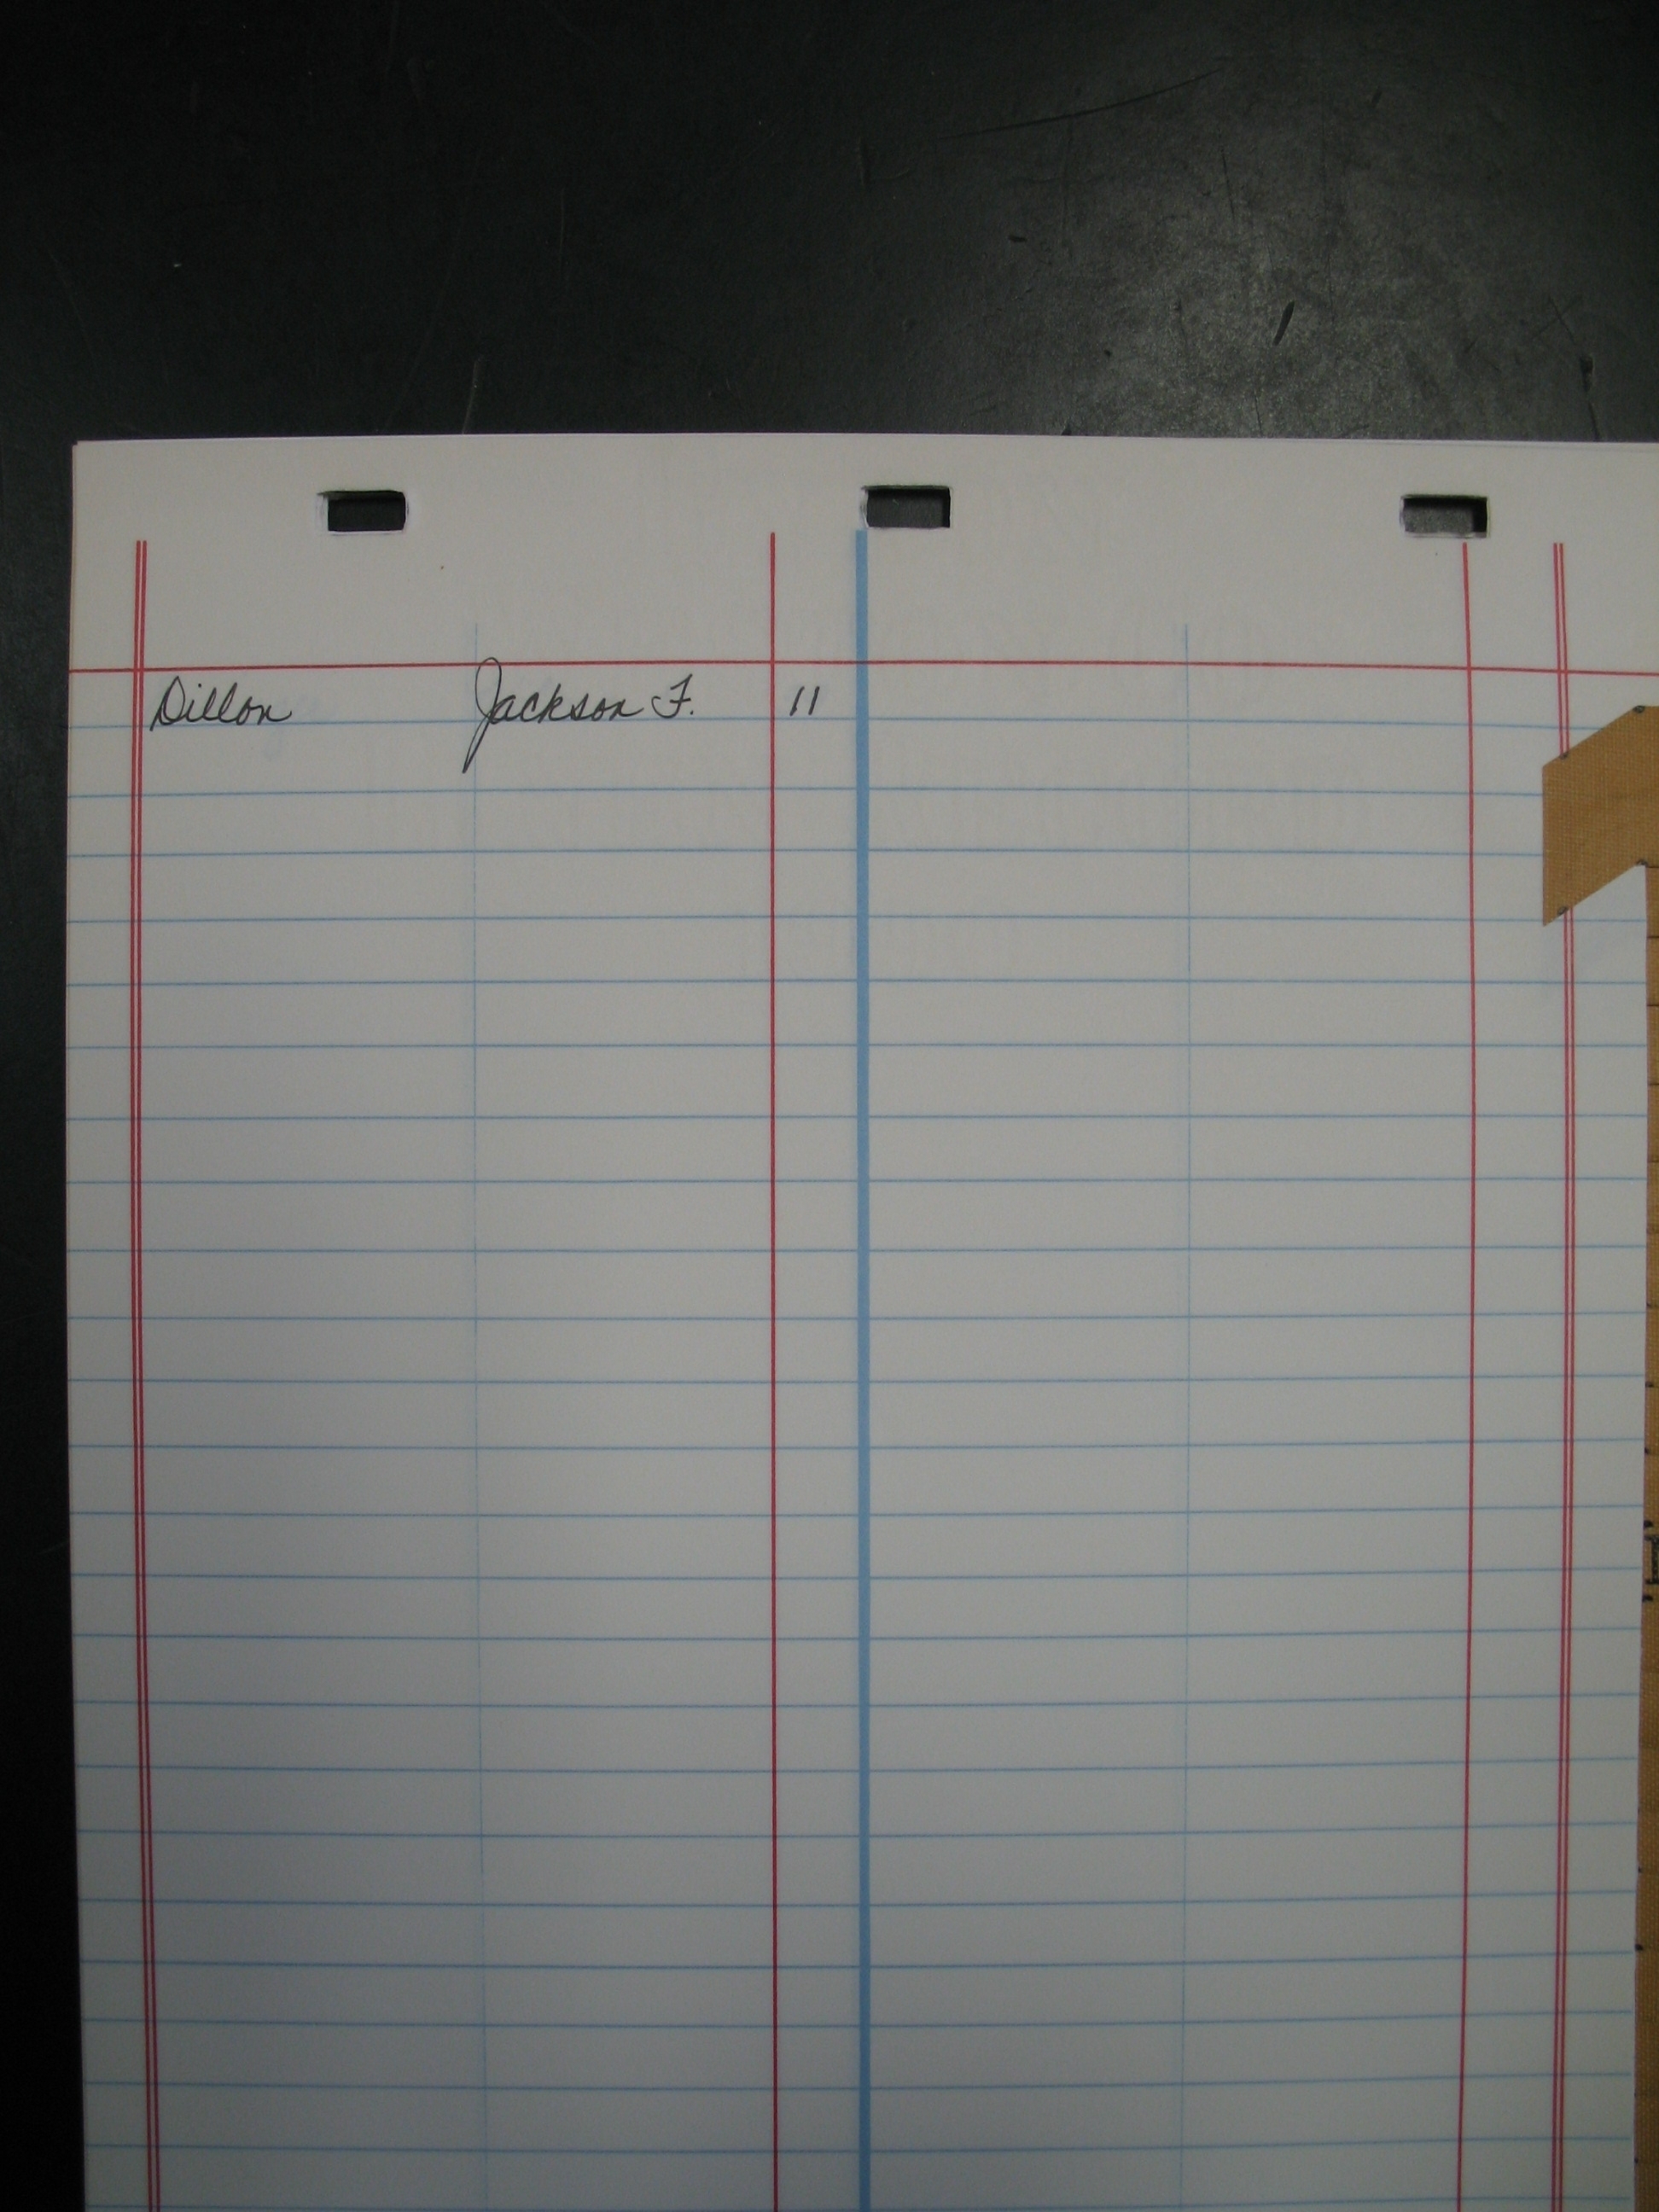 Dillon Jackson F. 11